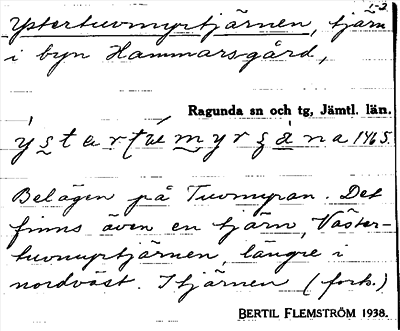 1-2
Ystertuvmyrtjärnen, tjärn
i byn Hammarsgård,
Ragunda sn och tg, Jämtl. län.
1465.
Belägen på Tuvmyran. Det
finns även en tjärn, Väster-
tuvmyrtjärnen, längre i
nordväst. I tjärnen (forts.)
BERTIL FLEMSTRÖM 1938.